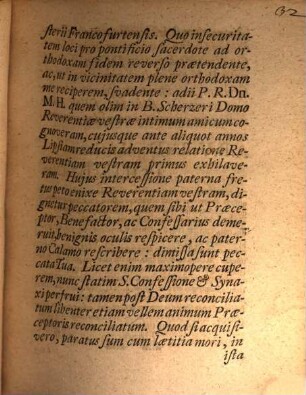 sterii Francofurtensis. Quo insecurita-
tem loci pro pontificio sacerdote ad or-
thodoxam fidem reverso prætendente,
ac, ut in vicinitatem plene orthodoxam
me reciperem, svadente: adii P. R. Dn.
M. H. quem olim in B. Scherzeri Domo
Reverentiæ vestræ intimum amicum co-
gnoveram, cujusque ante aliquot annos
Lipsiam reducis adventus relatione Re-
verentiam vestram primus exhilave-
ram. Hujus intercessione paterna fre-
tus peto enixe Reverentiam vestram, di-
gnetur peccatorem, quem sibi ut Præce-
ptor, Benefactor, ac Confessarius deme-
ruit, benignis oculis respicere, ac pater-
no Calamo rescribere: dimissa sunt pec-
cata Tua. Licet enim maximopere cupe-
rem, nunc statim S. Confessione & Syna-
xi perfrui: tamen post Deum reconcilia-
tum libenter etiam vellem animum Præ-
ceptoris reconciliatum. Quod si acquisi-
vero, paratus sum cum lætitia mori, in
ista